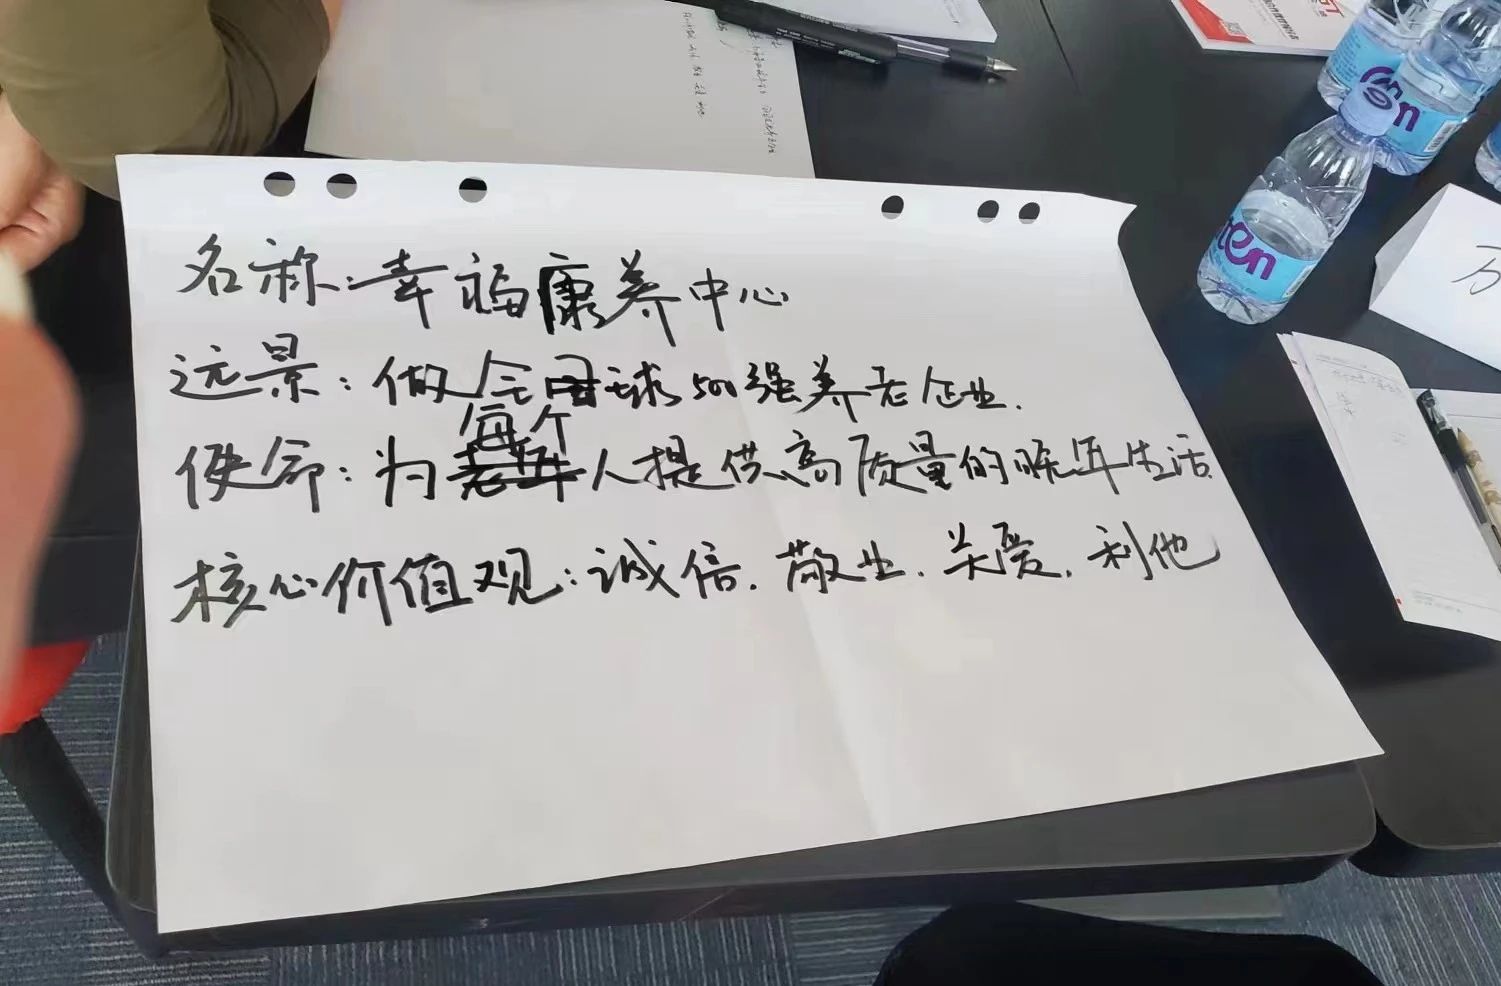 名称：幸福康养中心
远景：做全球500强养老企业.
使命：为每个人提供高质量的晚年生活
核心价值观：诚信.敬业.关爱.利他
万